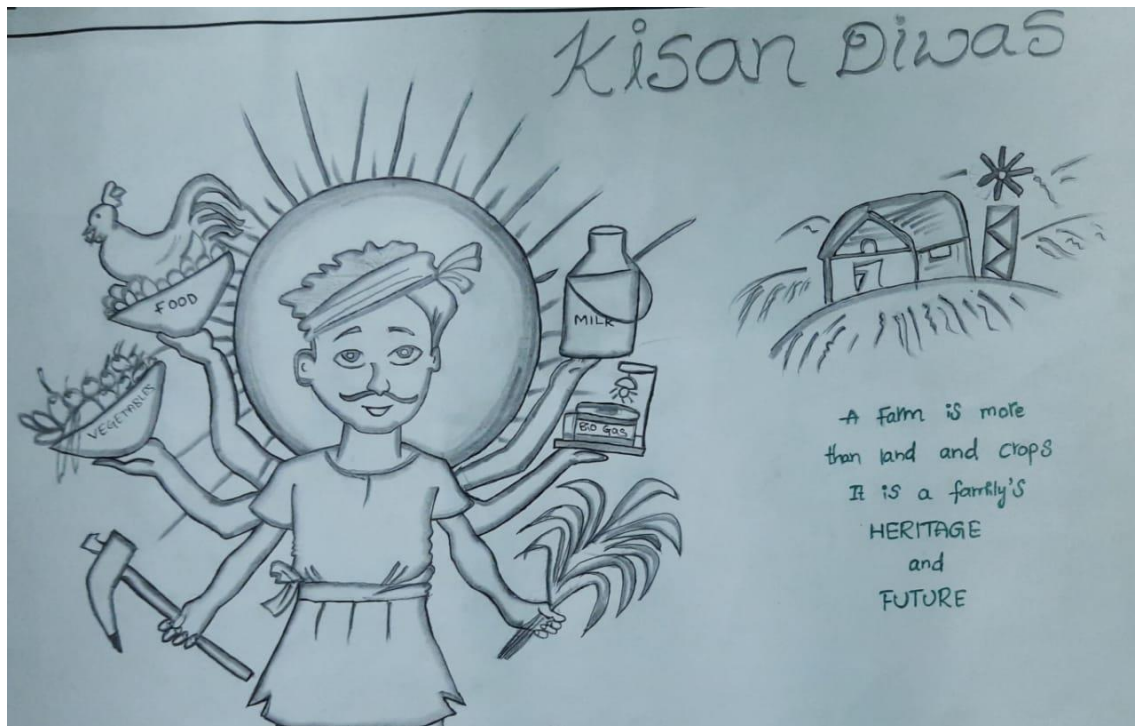 Kisan Diwas
FOOD
MILK
VEGETABLES
Bio Gas
A farm is more
than land and crops
It is a family's
HERITAGE
and
FUTURE